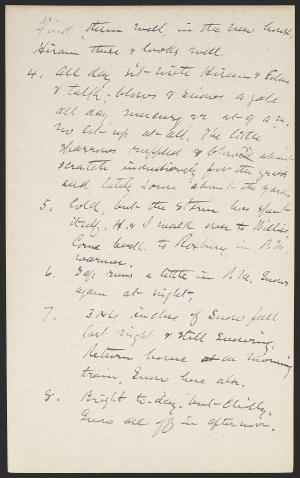 Find them well, in the new house,
Hiram there & looks well.
4. All day sit with Hiram & Eden
& talk; blows & snows a gale
all day, mercury 22 at 9 a.m.
no let up at all. The little
sparrows ruffled & blown about
scratch industriously for the grass
and lately down about the yard.
5. Cold, but the storm has spent
itself. H. & I walk over to Willies.
Come back to Roxbury in P.M.
warmer.
6. Sap runs a little in P.M. Snow
again at night.
7. 3 inches of snow fell
last night, & still snowing,
Return home on morning
train, Snow here also.
8. Bright to-day, but chilly.
Snow all off in afternoon.